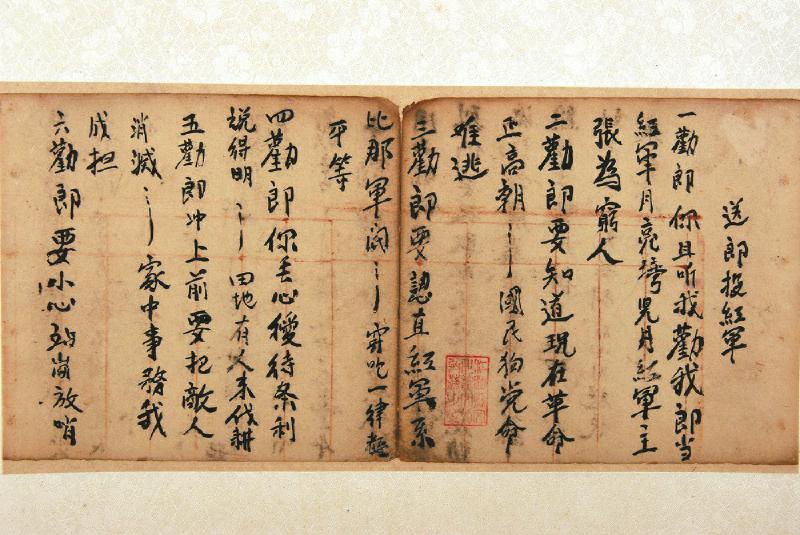 送郎投紅軍
一勸郎你且听我勸我郎当
紅軍月亮湾児月紅軍主
張為窮人
二勸郎要知道現在革命
正高朝〻國民狗党命
难逃
三勸郎要認真紅軍系
比那軍阀〻穿吃一律
平等
四勸郎你丢心優待条利
说得明〻田地有人来伐耕
五勸郎冲上前要把敵人
消滅〻家中事務我
成担
六勸郎要小心站崗放哨